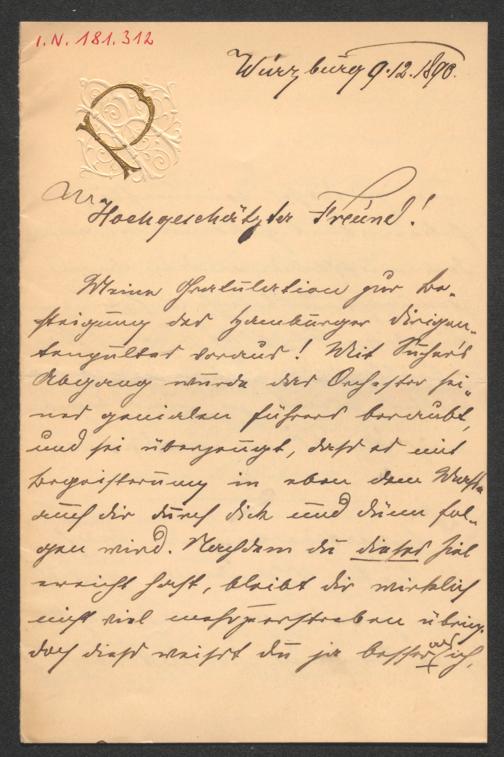 I.N. 181.312
Würzburg 9.12.1890.
P
Hochgeschätzter Freund!
Meine Gratulation zur Be-
steigung des Hamburger Dirigen-
tenpultes voraus! Mit Sucher's
Abgang wurde das Orchester sei-
nes genialen Führers beraubt,
und sei überzeugt, dass es mit
Begeisterung in eben dem Maße
auch dir durch dick und dünn fol-
gen wird. Nachdem du dieses Ziel
erreicht hast, bleibt dir wirklich
nicht viel mehr zu erstreben übrig,
doch dieß weisst du ja besser als ich,